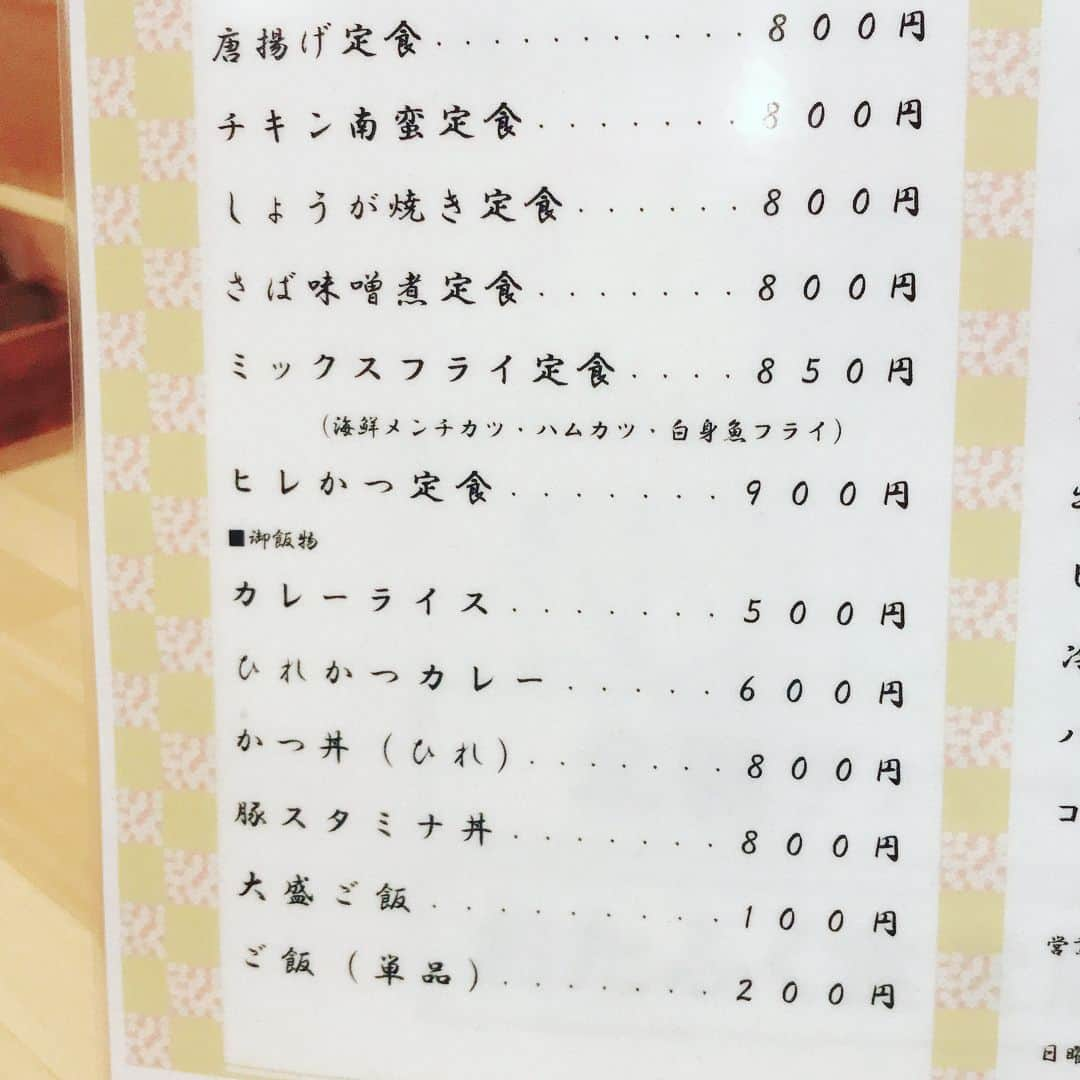 唐揚げ定食............800円
チキン南蛮定食........800円
しょうが焼き定食.......800円
さば味噌煮定食........800円
ミックスフライ定食....850円
(海鮮メンチカツ・ハムカツ・白身魚フライ)
ヒレかつ定食........900円
■御飯物
カレーライス........500円
ひれかつカレー......600円
かつ丼(ひれ)........800円
豚スタミナ丼........800円
大盛ご飯...........100円
ご飯(単品)........200円
冷
コ
営
日曜